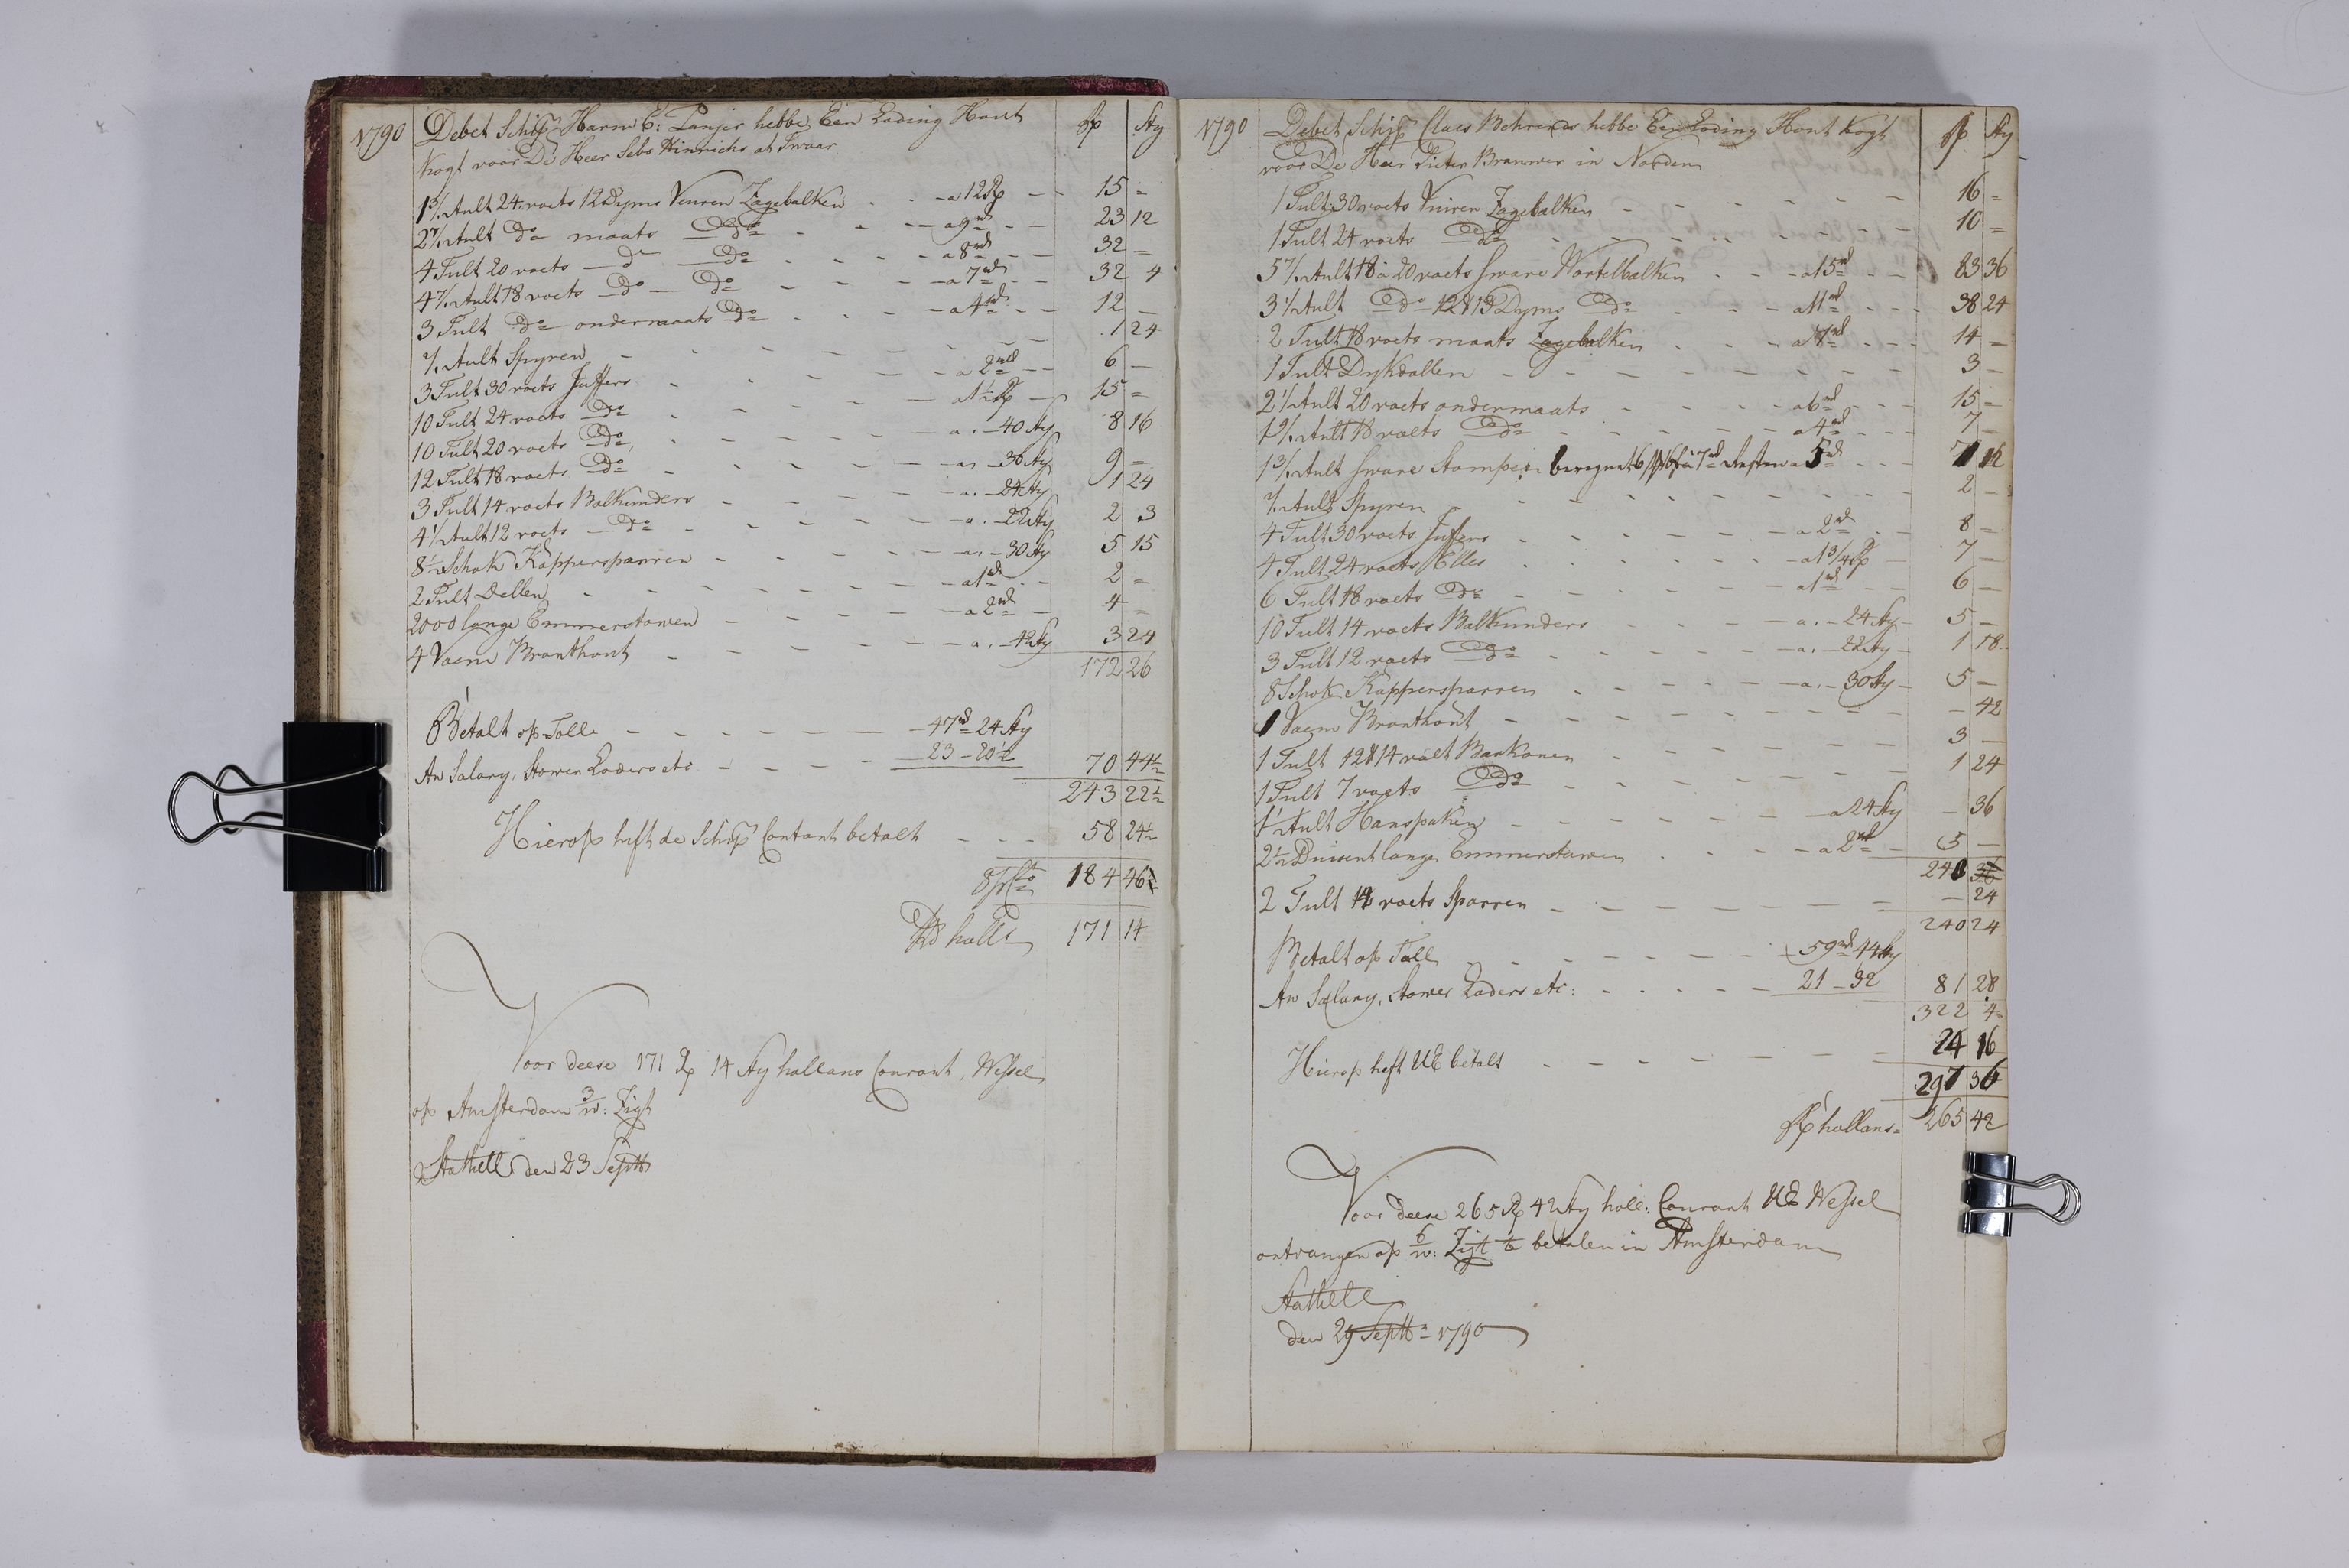 1790 Debet Schipr Harm E: Panjer hebbe Een Lading Hout Rp Sty
kogt voor De Heer Sebo Hinrichs at Twaar
1 3/. Tult 24. voets 12 Dyms Veuren Zagebalken - - - a 12 Rp - - 15 =
2 7/. Tult do maats do - - - a 9 rd - - 23 12
4 Tult 20 voets do do - - - a 8 rd - - 32 =
4 7/. Tult 18 voets do do - - - a 7 rd - - 32 4
3 Tult do ondermaats do - - - a 4 rd - - 12 -
/. Tult Spyren - - - 1 24
3 Tult 30 voets Juffers - - - a 2 rd - - 6 -
10 Tult 24 voets do - - - a 1½ Rp - 15 =
10 Tult 20 voets do - - - a . - 40 Sty 8 16
12 Tult 18 voets do - - - a . - 36 Sty 9 =
3 Tult 14 voets Balkunders - - - a . - 24 Sty 1 24
4 1/. Tult 12 voets do - - - a . - 22 Sty 2 3
8½ Schok Kappersparren - - - a . - 30 Sty 5 15
2 Tult Dellen - - - a 1 rd - - 2 =
2000 lange Emmerstaven - - - a 2 rd - 4 =
4 Vaem Branthout - - - a . - 42 Sty 3 24
172 26
Betalt op Toll - - - 47 rd 24 Sty
An Salary, Stouwer Loders etc - - - 23 - 20½ 70 44½
243 22½
Hierop heft de Schipr Contant betalt - - - 58 24½
184 46
Rd holls 171 14
Voor deese 171 Rp 14 Sty hollans Courant, Wessel
op Amsterdam 3/w: Zigt
Stathell den 23 Septb
1790 Debet Schipr Claes Behrends hebbe Een Lading Hout kogt Rp Sty
voor De Heer Pieter Brauwer in Norden
1 Tult 30 voets Vuiren Zagebalken - - - 16 =
1 Tult 24 voets do - - - 10 =
5 7/. Tult 18 a 20 voets sware Wortelbalken - - - a 15 rd - - 83 36
3 1/. Tult do 12 a 13 Dyms do - - - a 11 rd - - 38 24
2 Tult 18 voets maats Zagebalken - - - a 7 rd - - 14 =
1 Tult Dykdallen - - - 3 -
2 1/. Tult 20 voets ondermaats - - - a 6 rd - - 15 =
1 9/. Tult 18 voets do - - - a 4 rd - - 7 -
1 3/. Tult sware Stompen a 5 rd - - 7 12
/. Tult Spyren - - - 2 -
4 Tult 30 voets Juffers - - - a 2 rd - - 8 =
4 Tult 24 voets Elles - - - a 1 3/4 Rp - 7 -
6 Tult 18 voets do - - - a 1 rd - - 6 -
10 Tult 14 voets Balkunders - - - a . - 24 Sty - 5 -
3 Tult 12 voets do - - - a . - 22 Sty - 1 18
8 Schok Kappersparren - - - a . - 30 Sty - 5 -
1 Vaem Branthout - - - 42
1 Tult 12 a 14 voet Barkonen - - - 3 -
1 Tult 7 voets do - - - 1 24
1½ Tult Hanspaken - - - a 24 Sty - 36
2½ Duisent lange Emmerstaven - - - a 2 rd - 5 -
240
2 Tult 14 voets Sparren - - - 24
240 24
Betalt op Toll - - - 59 rd 44 Sty
An Salary, Stouwer Loders etc: - - - 21 - 32 81 28
322 4
Hierop heft UE betalt - - - 24 16
297 36
Rp hollans 265 42
Voor deese 265 Rp 42 Sty holl: Courant UE Wessel
ontvangen op 6/w: Zigt te betalen in Amsterdam
Stathelle
den 29 Septb 1790